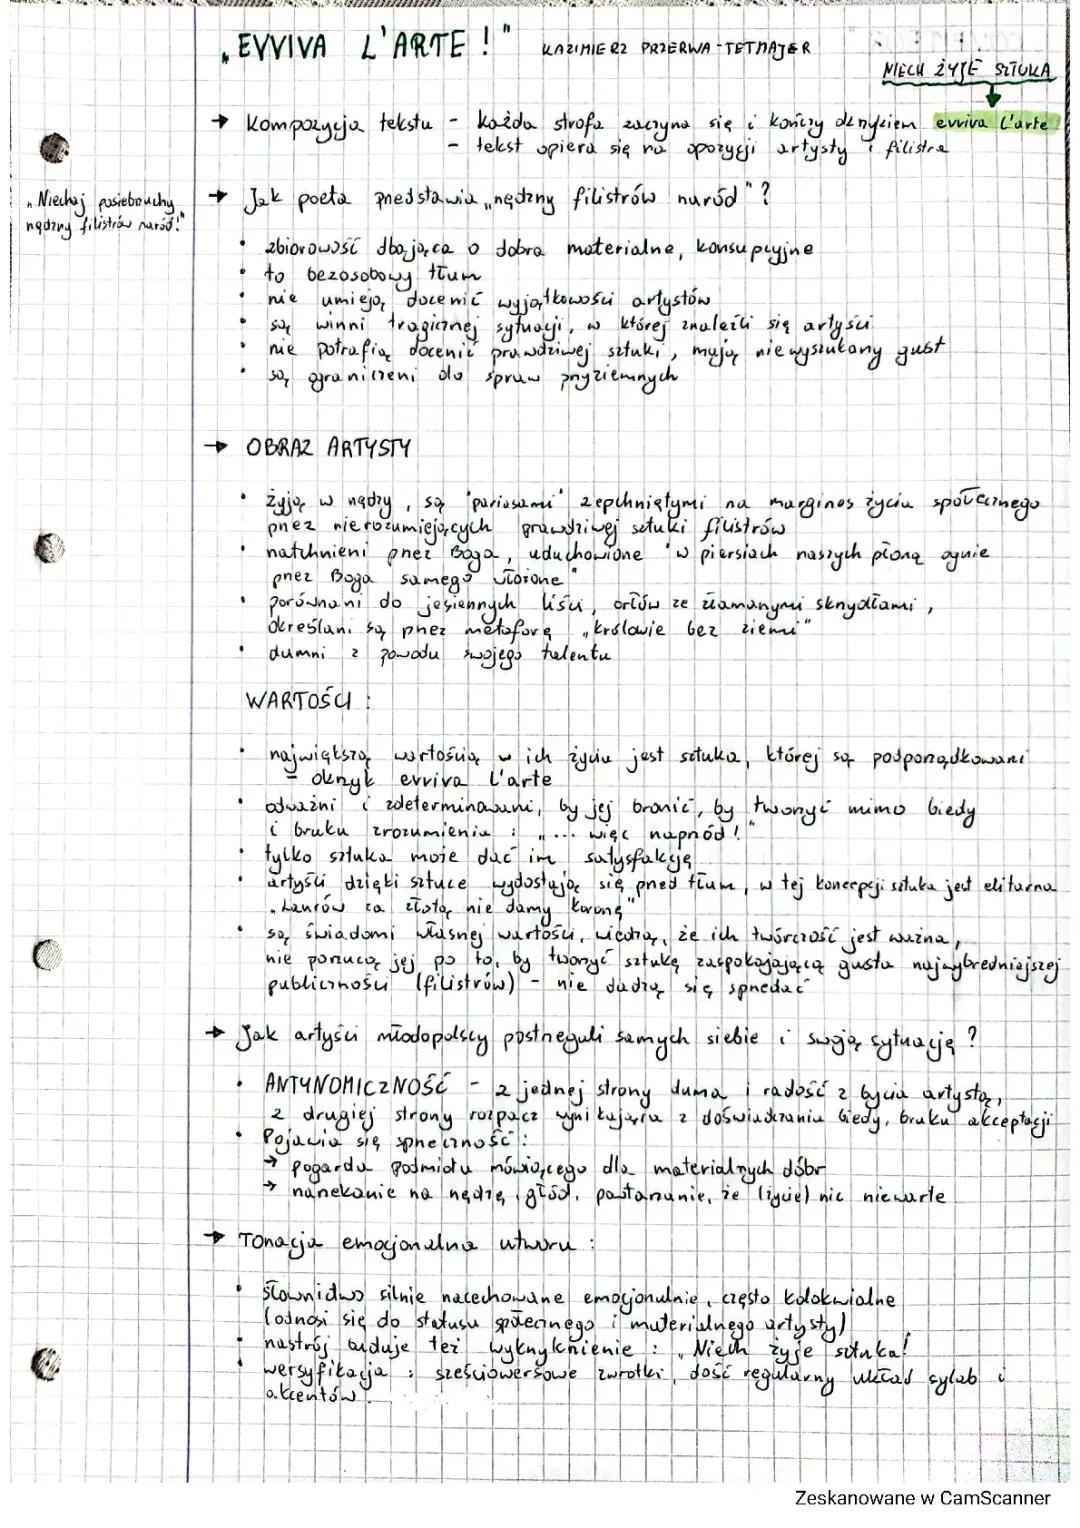 „EVVIVA L'ARTE!" KAZIMIERZ PRZERWA-TETMAJER
NIECH ŻYJE SZTUKA
→ Kompozycja tekstu - każda strofa zaczyna się i kończy okrzykiem evviva l'arte
- tekst opiera się na opozycji artysty i filistra
„Niechaj pasiebrzuchy
nędzny filistrów naród!"
→ Jak poeta przedstawia „nędzny filistrów naród"?
• zbiorowość dbająca o dobra materialne, konsupcyjne
• to bezosobowy tłum
• nie umieją docenić wyjątkowości artystów
• są winni tragicznej sytuacji, w której znaleźli się artyści
• nie potrafią docenić prawdziwej sztuki, mają niewyszukany gust
• są ograniczeni do spraw przyziemnych
→ OBRAZ ARTYSTY
• żyją w nędzy, są 'pariasami' zepchniętymi na margines życia społecznego
przez nierozumiejących prawdziwej sztuki filistrów
• natchnieni przez Boga, uduchowione "w piersiach naszych płoną ognie
przez Boga samego włożone"
• porównani do jesiennych liści, orłów ze złamanymi skrzydłami,
określani są przez metaforę „królowie bez ziemi"
• dumni z powodu swojego talentu
WARTOŚCI:
• największą wartością w ich życiu jest sztuka, której są podporządkowani
- okrzyk evviva l'arte
• odważni i zdeterminowani, by jej bronić, by tworzyć mimo biedy
i braku zrozumienia: „... więc naprzód!"
• tylko sztuka może dać im satysfakcję
• artyści dzięki sztuce wydostają się pned tłum, w tej koncepcji sztuka jest elitarna
„Laurów za złotą nie damy koronę"
• są świadomi własnej wartości, wiedzą, że ich twórczość jest ważna,
nie porzucą jej po to, by tworzyć sztukę zaspokajającą gusta najwybredniejszej
publiczności (filistrów) - nie dadzą się sprzedać
→ Jak artyści młodopolscy postrzegali samych siebie i swoją sytuację?
• ANTYNOMICZNOŚĆ - z jednej strony duma i radość z bycia artystą,
z drugiej strony rozpacz wynikająca z doświadczania biedy, braku akceptacji
• Pojawia się sprzeczność:
→ pogarda podmiotu mówiącego dla materialnych dóbr
→ narzekanie na nędzę, głód, powtarzanie, że (życie) nic niewarte
→ Tonacja emocjonalna utworu:
• słownictwo silnie nacechowane emocjonalnie, często kolokwialne
(odnosi się do statusu społecznego i materialnego artysty)
• nastrój buduje też wykrzyknienie: „Niech żyje sztuka!
• wersyfikacja: sześciowersowe zwrotki, dość regularny układ sylab i
akcentów.
Zeskanowane w CamScanner